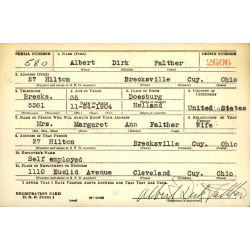 SERIAL NUMBER 1. NAME (Print) ORDER NUMBER
580 Albert Dirk Falther 2606
(First) (Middle) (Last)
2. ADDRESS (Print)
27 Hilton Brecksville Cuy. Ohio
3. TELEPHONE 4. AGE IN YEARS 5. PLACE OF BIRTH 6. COUNTRY OF CITIZENSHIP
Brecks. 35 Doesburg
5381 11-24-1904 Holland United States
7. NAME OF PERSON WHO WILL ALWAYS KNOW YOUR ADDRESS
Mrs. Margaret Ann Falther Wife
9. ADDRESS OF THAT PERSON
27 Hilton Brecksville Cuy. Ohio
10. EMPLOYER'S NAME
Self employed
11. PLACE OF EMPLOYMENT OR BUSINESS
1110 Euclid Avenue Cleveland Cuy. Ohio
I AFFIRM THAT I HAVE VERIFIED ABOVE ANSWERS AND THAT THEY ARE TRUE.
REGISTRATION CARD
D. S. S. Form 1
Albert Dirk Falther